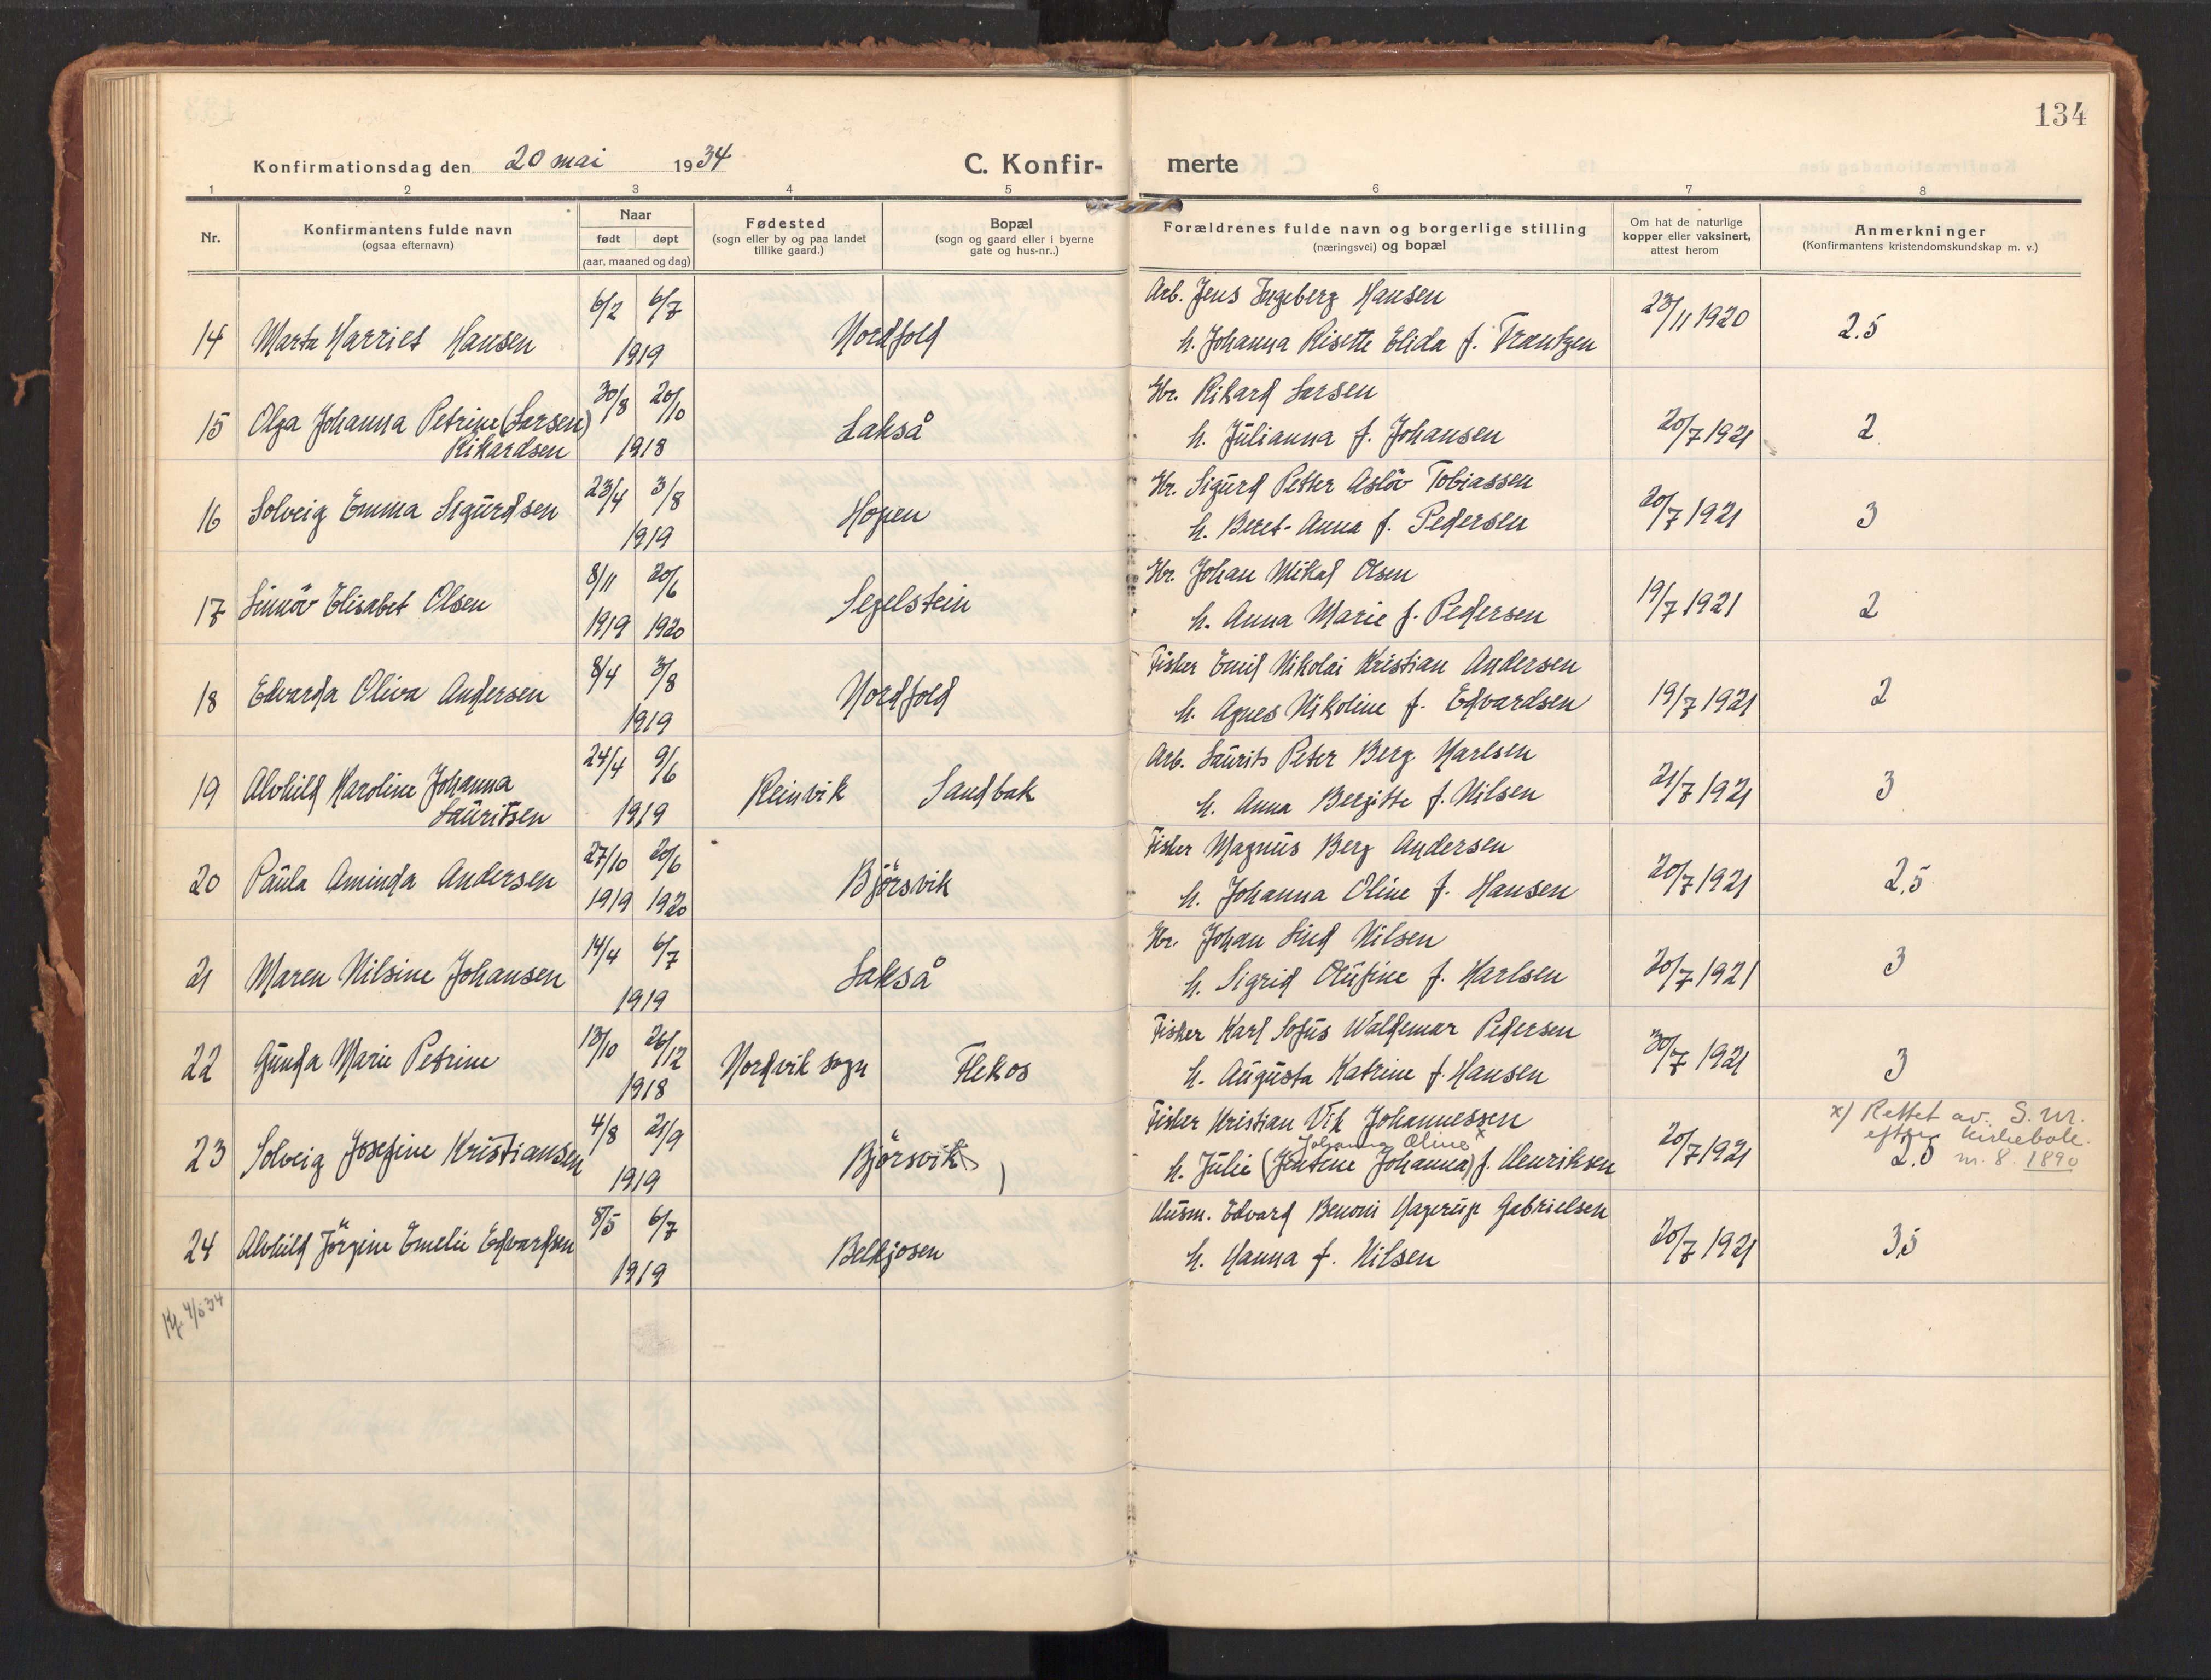 134
Konfirmationsdag den 20 mai 1934
C. Konfir- merte
1 2 3 4 5 6 7 8
Nr.
Konfirmantens fulde navn
(ogsaa efternavn)
Naar
født døpt
(aar, maaned og dag)
Fødested
(sogn eller by og paa landet
tillike gaard.)
Bopæl
(sogn og gaard eller i byerne
gate og hus-nr..)
Forældrenes fulde navn og borgerlige stilling
(næringsvei) og bopæl
Om hat de naturlige
kopper eller vaksinert,
attest herom
Anmerkninger
(Konfirmantens kristendomskundskap m. v.)
6/2 6/7 Arb. Jens Ingeberg Hansen 23/11 1920
14 Marta Harriet Hansen 1919 Nordfold h. Johanna Risette Elida f. Frantzen 2.5
30/8 20/10 Hr. Rikard Larsen
15 Olga Johanna Petrine (Larsen) Lakså h. Julianna f. Johansen 20/7 1921 2
Rikardsen 1918
23/4 3/8 Hr. Sigurd Petter Aslöv Tobiassen
16 Solveig Emma Sigurdsen Hopen h. Beret-Anna f. Pedersen 20/7 1921 3
1919
8/11 20/6 Hr. Johan Mikal Olsen
17 Sinnöv Elisabet Olsen Segelstein h. Anna Marie f. Pedersen 19/7 1921 2
1919 1920
8/4 3/8 Fisker Emil Nikolai Kristian Andersen
18 Edvarda Oliva Andersen Nordfold h. Agnes Nikoline f. Edvardsen 19/7 1921 2
1919
24/4 9/6 Arb. Laurits Peter Berg Karlsen
19 Alvhild Karoline Johanna Reinvik Sandbak h. Anna Bergitte f. Nilsen 21/7 1921 3
Lauritsen 1919
27/10 20/6 Fisker Magnus Berg Andersen
20 Paula Aminda Andersen Björsvik h. Johanna Oline f. Hansen 20/7 1921 2,5
1919 1920
14/4 6/7 Hr. Johan Lind Nilsen
21 Maren Nilsine Johansen Lakså h. Sigrid Olufine f. Karlsen 20/7 1921 3
1919
13/10 26/12 Fisker Karl Sofus Waldemar Pedersen
22 Gunda Marie Petrine Nordvik sogn Flekos h. Augusta Katrine f. Hansen 30/7 1921 3
1918
4/8 21/9 Fisker Kristian Vik Johannessen x) Rettet av. S. M.
Johanna Oline x efter kirkebok.
23 Solveig Josefine Kristiansen Björsvik h. Julie (Jentine Johanna) f. Henriksen 20/7 1921 2.5 nr. 8. 1890
1919
8/5 6/7 Husm. Edvard Benoni Hagerup Gabrielsen
24 Alvhild Jörgine Emelie Edvardsen Belkjosen h. Hanna f. Nilsen 20/7 1921 3,5
1919
4/6 34